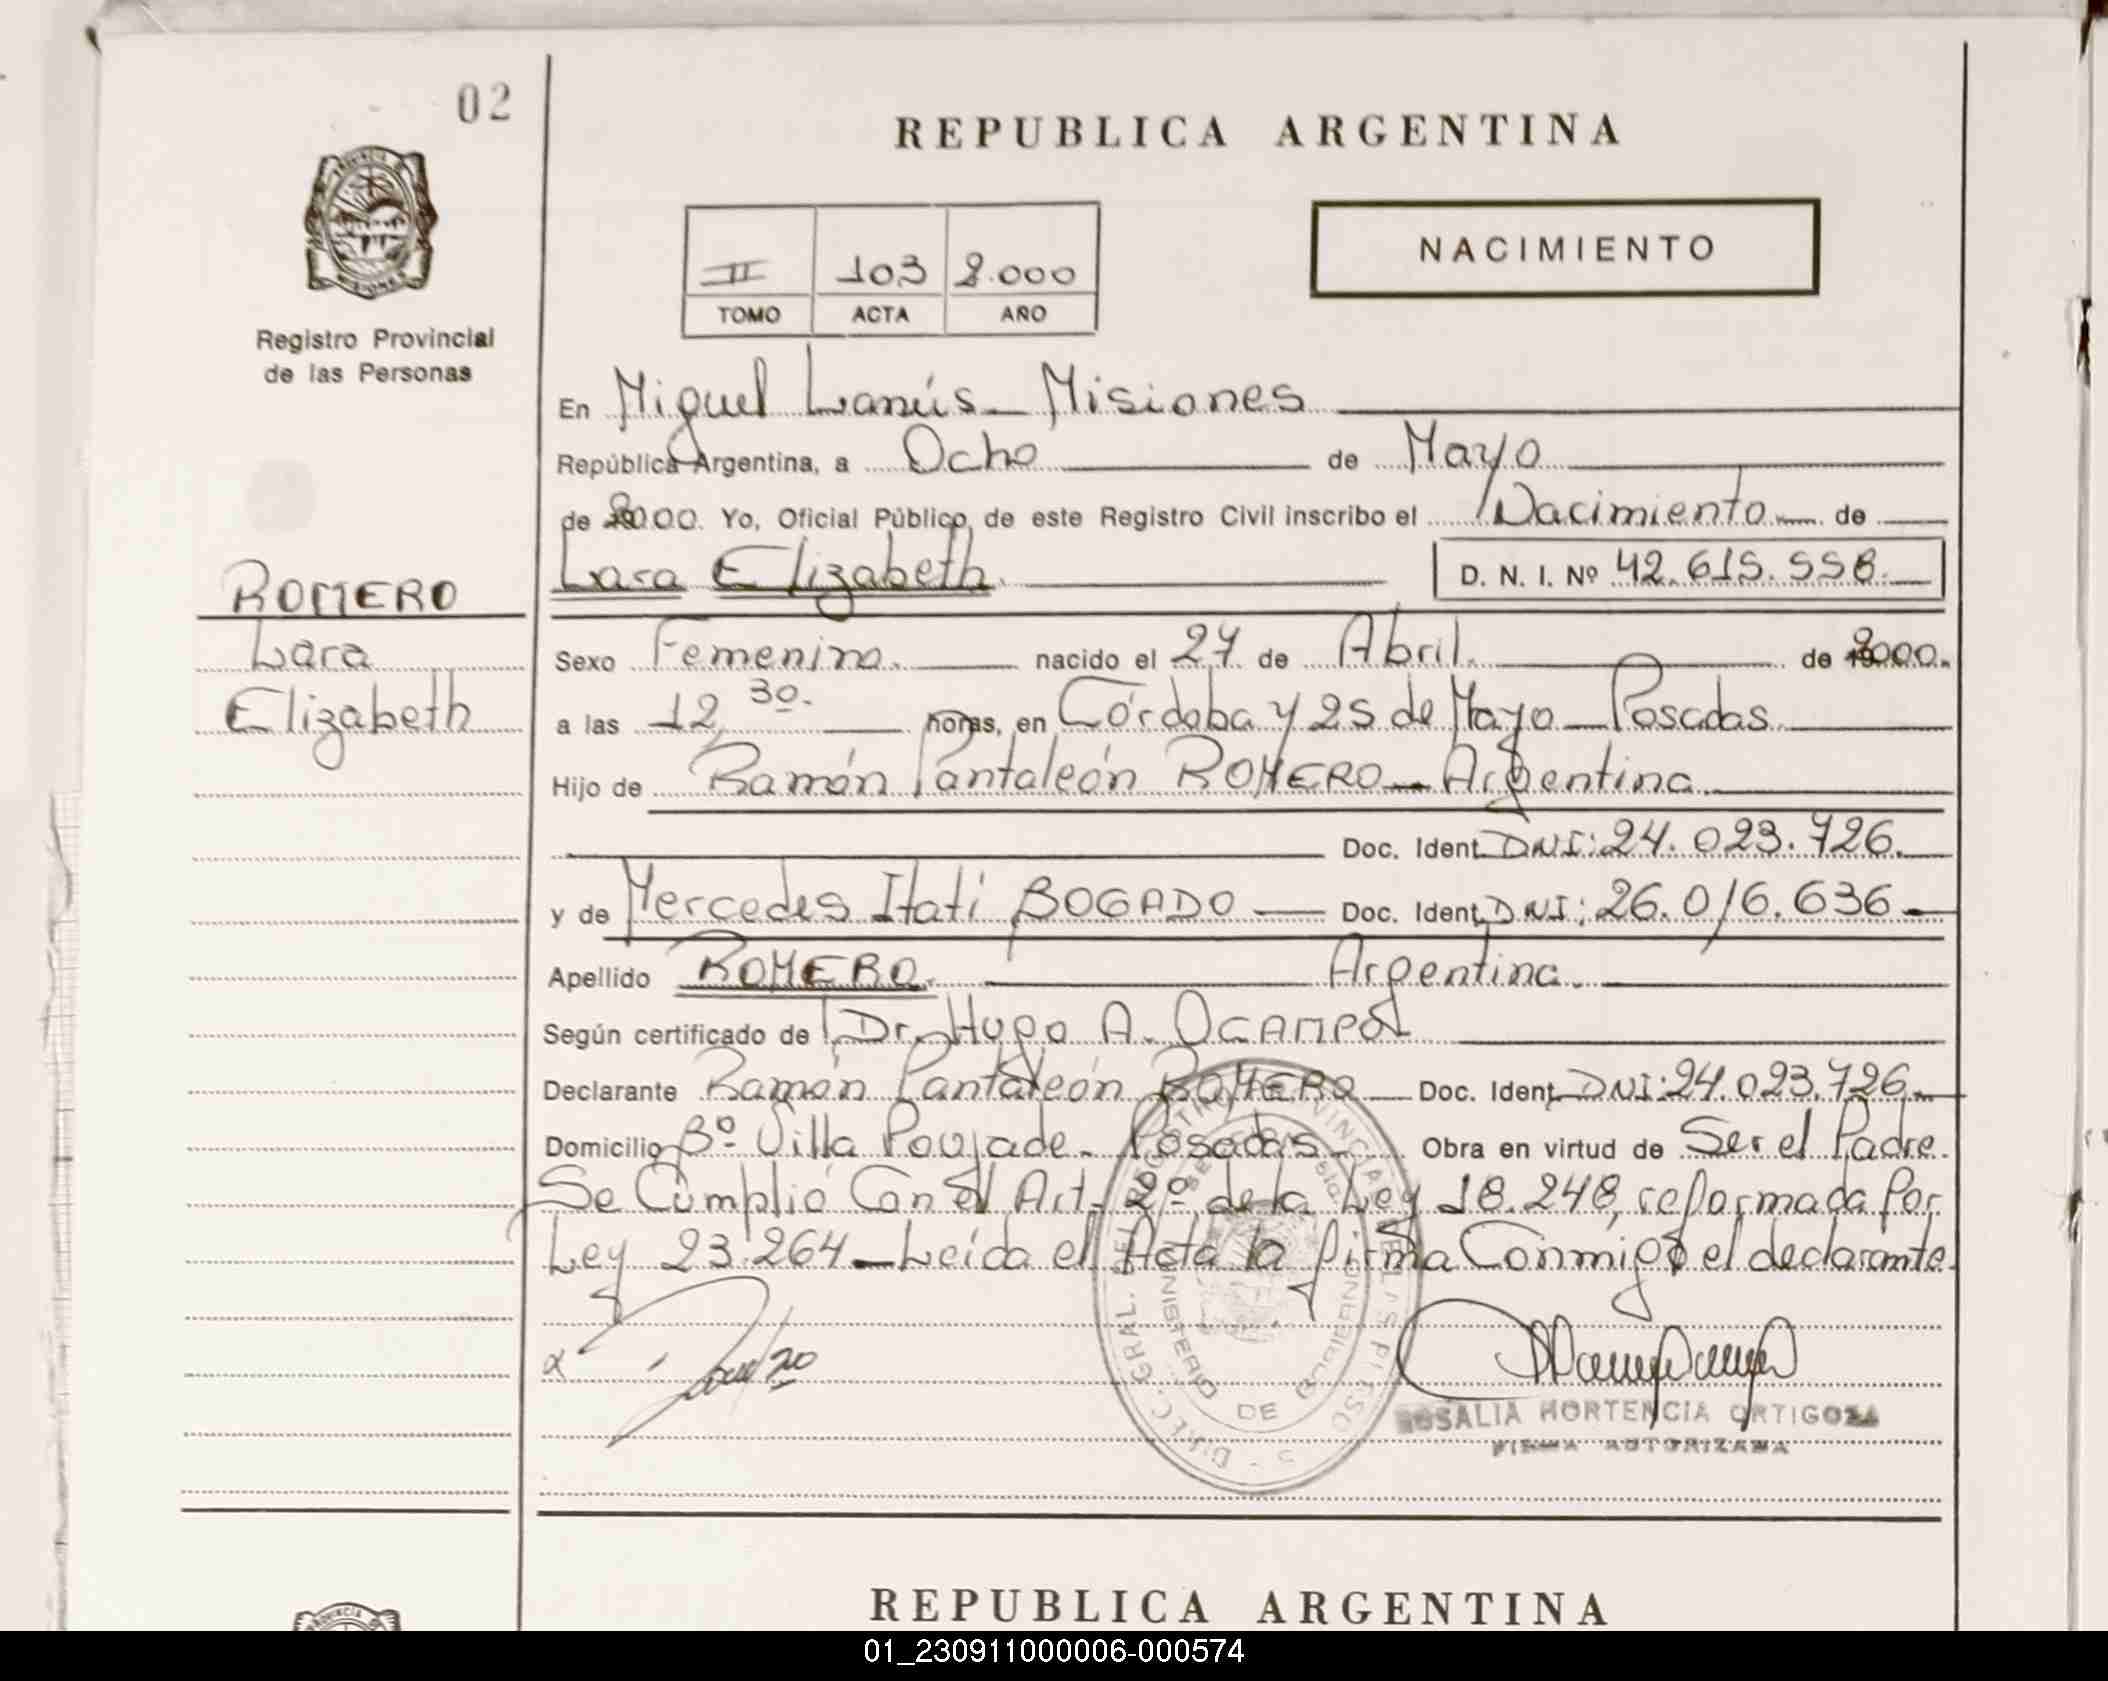 02
REPUBLICA ARGENTINA
NACIMIENTO
II 103 2.000
TOMO ACTA AÑO
Registro Provincial
de las Personas
En Miguel Lanús - Misiones
República Argentina, a Ocho de Mayo
de 2000. Yo, Oficial Público, de este Registro Civil inscribo el Nacimiento de
Lara Elizabeth. D. N. I. Nº 42.615.558.
ROMERO
Lara
Elizabeth
Sexo Femenino. nacido el 27 de Abril. de 2000.
a las 12,30. horas, en Córdoba y 25 de Mayo - Posadas
Hijo de Ramón Pantaleón ROMERO - Argentina
Doc. Ident. DNI: 24.023.726.
y de Mercedes Itatí BOGADO - Doc. Ident. DNI: 26.016.636 -
Apellido ROMERO. Argentina.
Según certificado de Dr. Hugo A. OCAMPO
Declarante Ramón Pantaleón ROMERO - Doc. Ident. DNI: 24.023.726 -
Domicilio Bº Villa Poujade - Posadas - Obra en virtud de Ser el Padre.
Se Cumplió Con el Art. 2º de la Ley 18.248, reformada Por
Ley 23.264 - Leída el Acta la firma Conmigo el declarante.
ROSALIA HORTENCIA ORTIGOZA
FIRMA AUTORIZADA
MINISTERIO DE GOBIERNO
REPUBLICA ARGENTINA
01_230911000006-000574